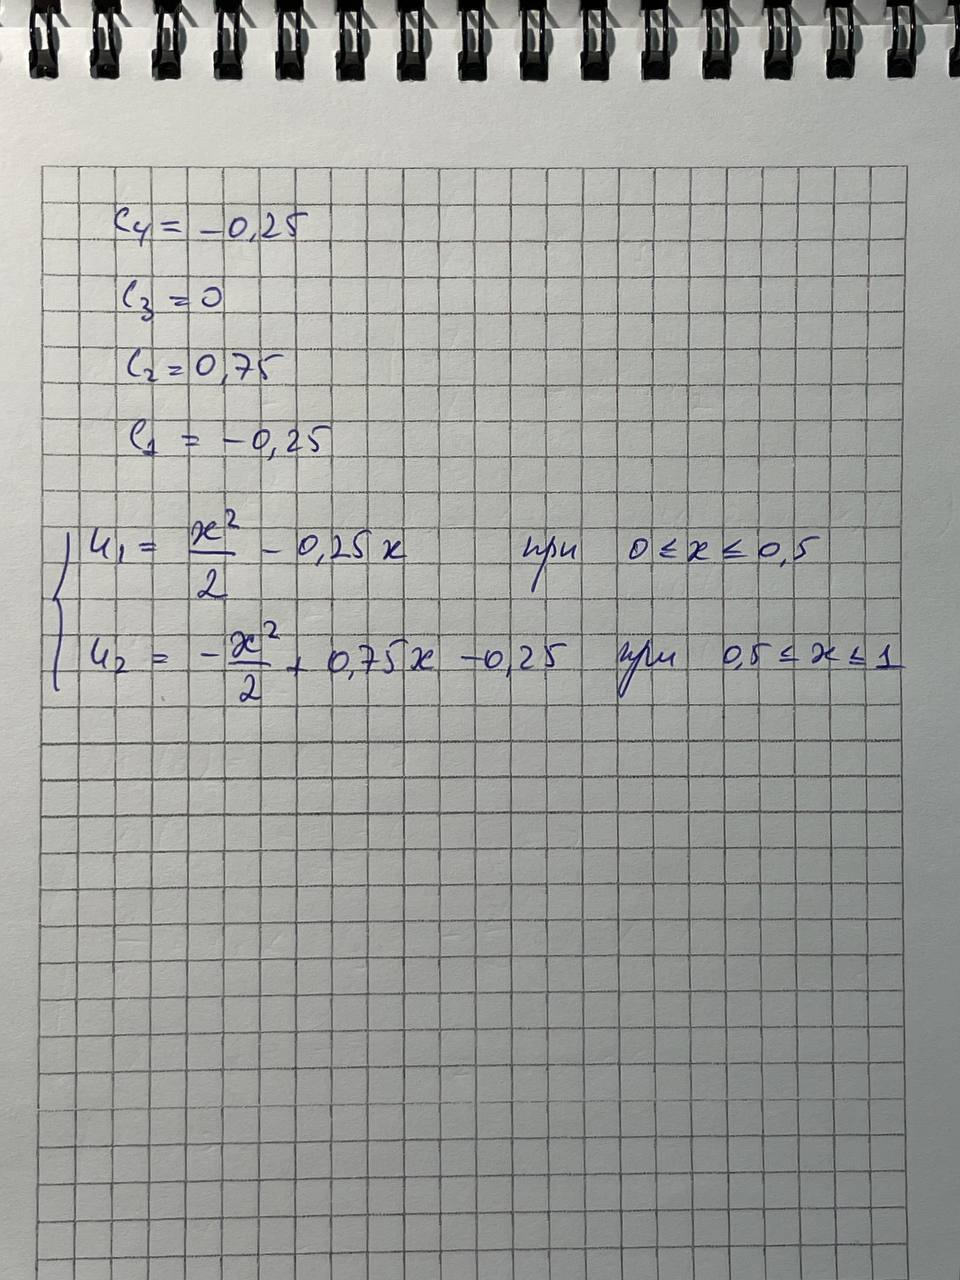 C₄ = -0,25
C₃ = 0
C₂ = 0,75
C₁ = -0,25
u₁ = x²/2 - 0,25x при 0 ≤ x ≤ 0,5
u₂ = -x²/2 + 0,75x - 0,25 при 0,5 ≤ x ≤ 1